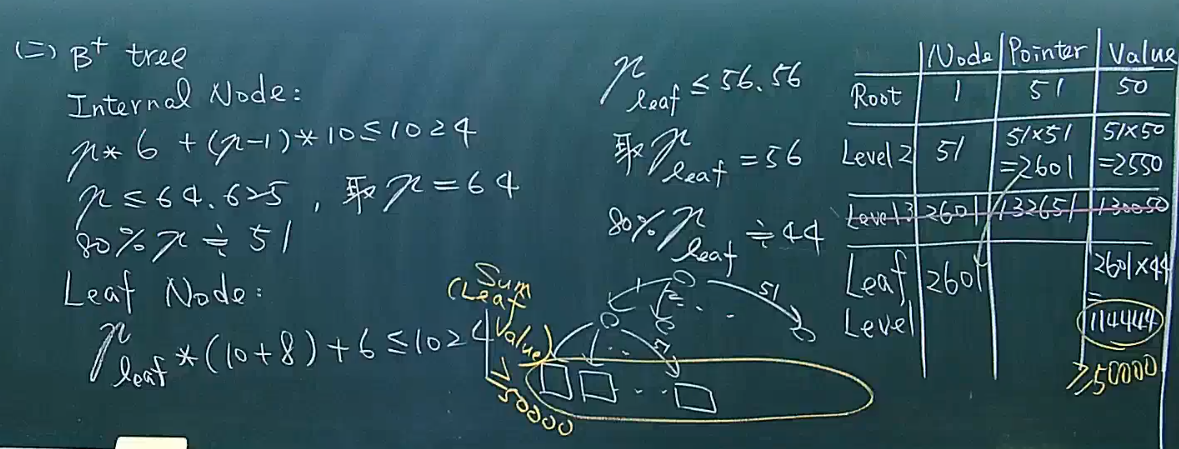 (二) B⁺ tree
Internal Node:
n*6+(n-1)*10≤1024
n≤64.625, 取n=64
80%n≒51
Leaf Node:
n leaf*(10+8)+6≤1024
n leaf≤56.56
取n leaf=56
80%n leaf≒44
Sum
(Leaf
Value)
≥50000
1 2 ... 51
... 51
...
Node Pointer Value
Root 1 51 50
Level 2 51 51×51=2601 51×50=2550
Level 3 2601 132651 130050
Leaf Level 2601 2601×44
=
114444
≥50000